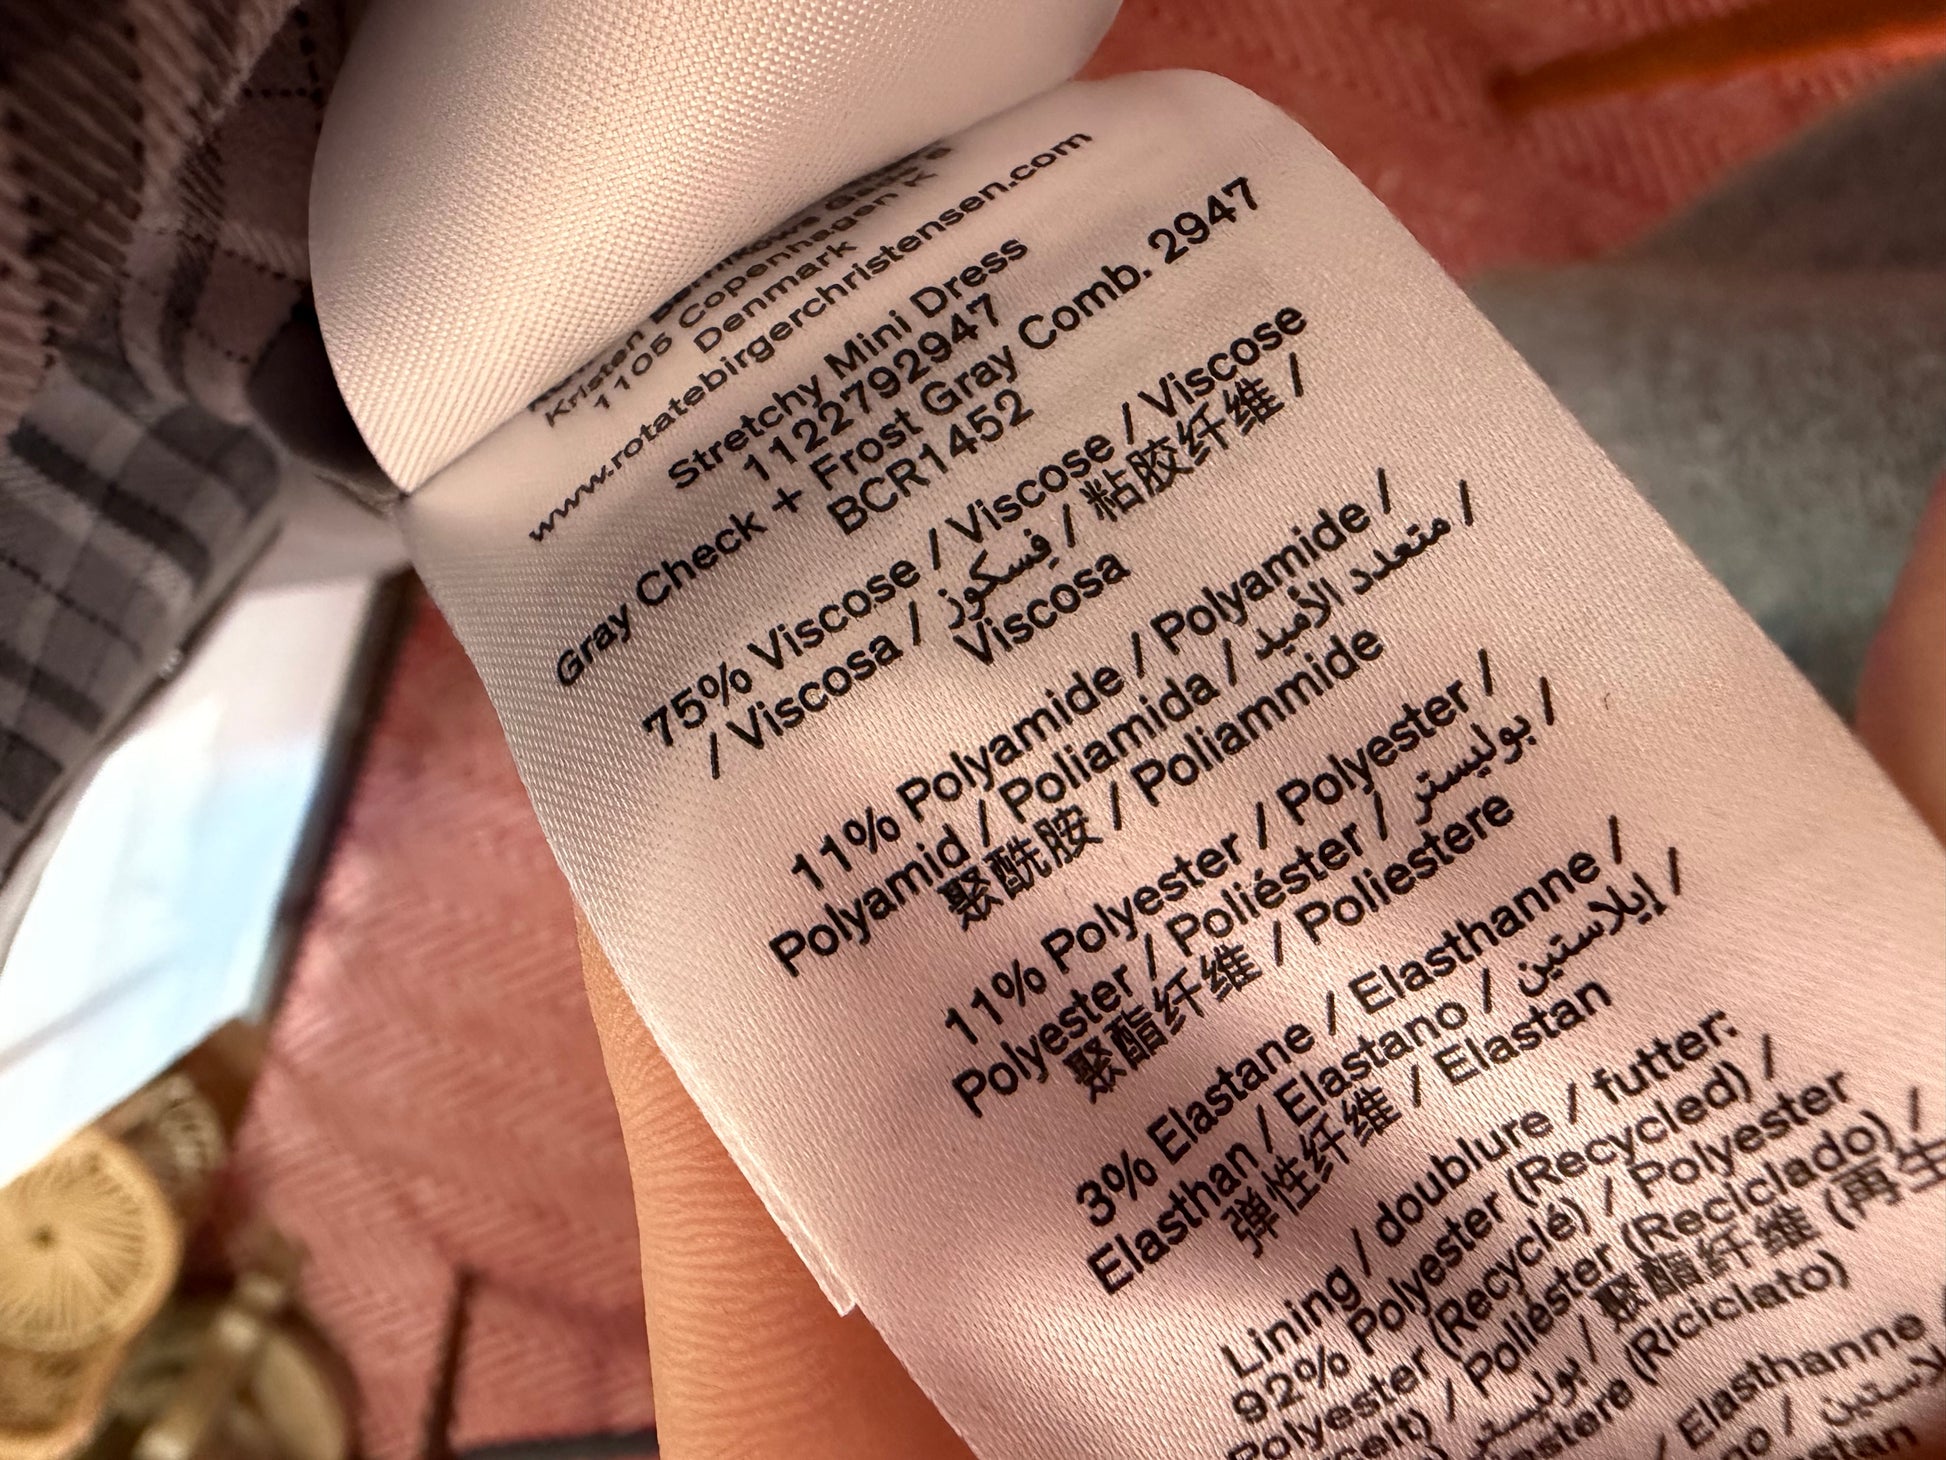 Kristen
1105 Copenhagen K
Denmark
www.rotatebirgerchristensen.com
Stretchy Mini Dress
1122792947
Gray Check + Frost Gray Comb. 2947
BCR1452
75% Viscose / Viscose / Viscose
/ Viscosa / فسكوز / 粘胶纤维 /
Viscosa
11% Polyamide / Polyamide /
Polyamid / Poliamida / متعدد الأميد /
聚酰胺 / Poliammide
11% Polyester / Polyester /
Polyester / Poliéster / بوليستر /
聚酯纤维 / Poliestere
3% Elastane / Elasthanne /
Elasthan / Elastano / إيلاستين /
弹性纤维 / Elastan
Lining / doublure / futter:
92% Polyester (Recycled) /
Polyester (Recyclé) / Polyester
/ Poliéster (Reciclado) /
بوليستر / 聚酯纤维 (再生
(Riciclato)
/ Elasthanne